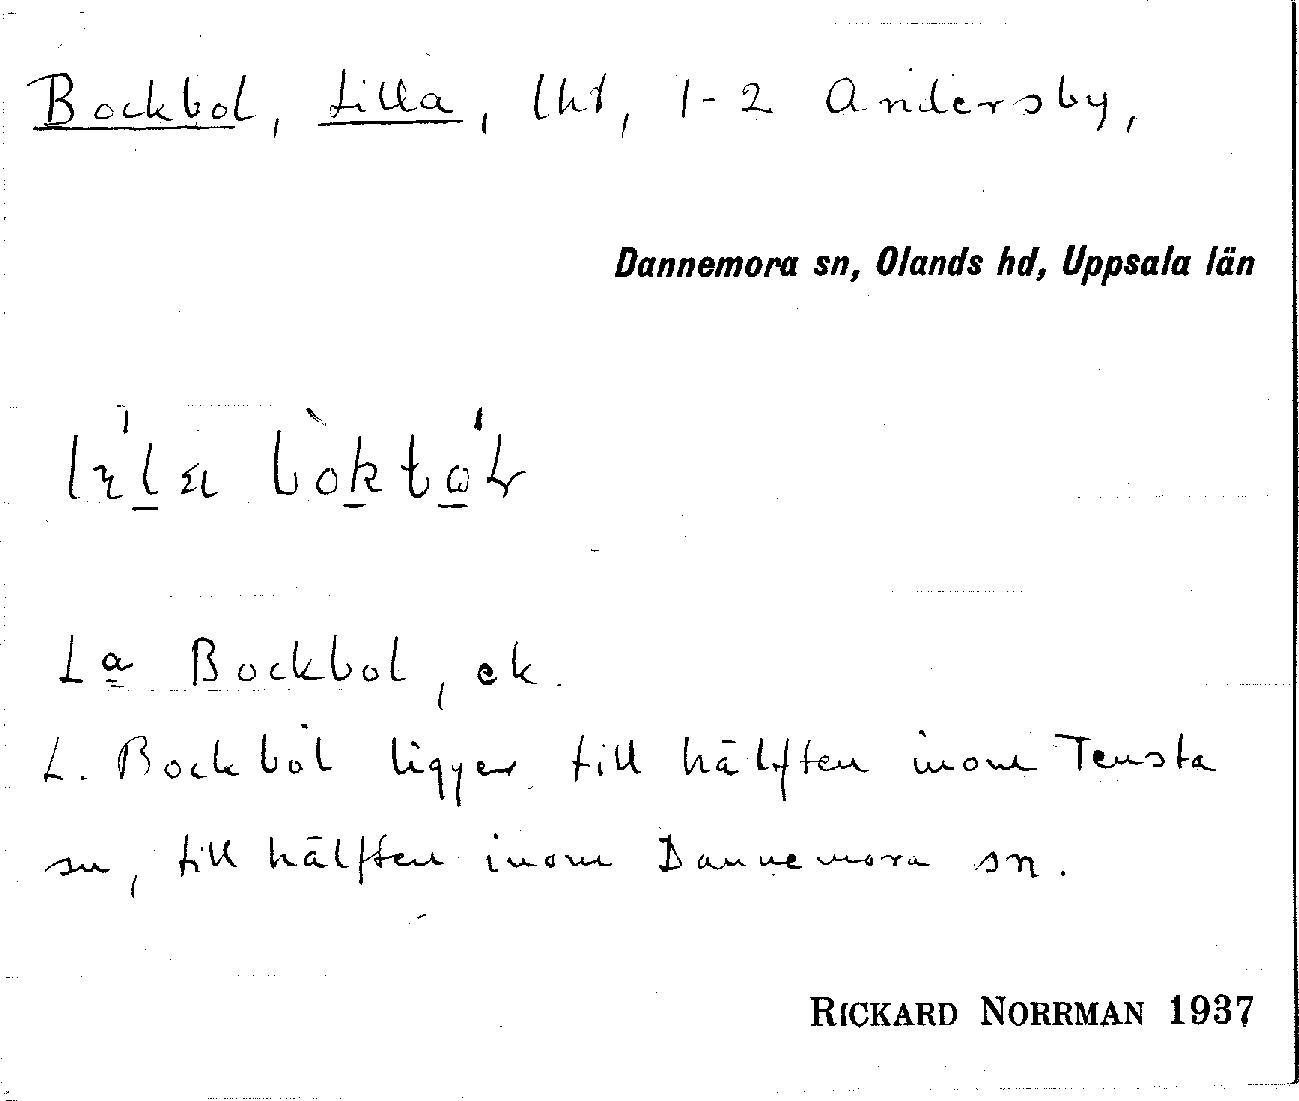 Bockbol, Lilla, lht, 1-2 Andersby,
Dannemora sn, Olands hd, Uppsala län
La Bockbol, ek.
L. Bockbol ligger till hälften inom Tensta
sn, till hälften inom Dannemora sn.
RICKARD NORRMAN 1937